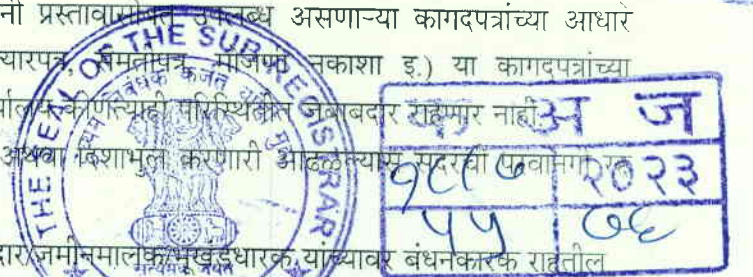 नी प्रस्तावासोबत उपलब्ध असणाऱ्या कागदपत्रांच्या आधारे
यारपत्र, संमतीपत्र, मोजणी नकाशा इ.) या कागदपत्रांच्या
र्यालय कोणत्याही परिस्थितीत जबाबदार राहणार नाही.
अथवा दिशाभुल करणारी आढळल्यास सदरची परवानगी
दार/जमीनमालक/भूखंडधारक यांच्यावर बंधनकारक राहतील
THE SEAL OF THE SUB REGISTRAR
सत्यमेव जयते
अ ज
२०२३
५५ ७६